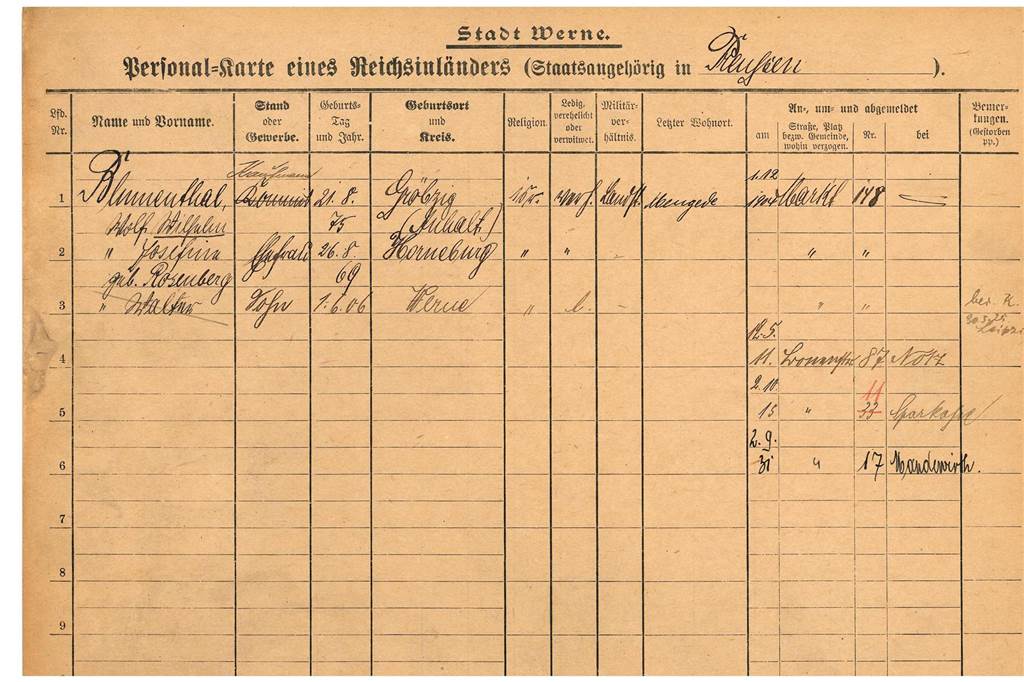 Stadt Werne.
Personal-Karte eines Reichsinländers (Staatsangehörig in Preußen).
Lfd. Nr.
Name und Vorname.
Stand oder Gewerbe.
Geburts-Tag und Jahr.
Geburtsort und Kreis.
Religion.
Ledig, verehelicht oder verwitwet.
Militär-ver-hältnis.
Letzter Wohnort.
An-, um- und abgemeldet
am
Straße, Platz bezw. Gemeinde, wohin verzogen.
Nr.
bei
Bemer-kungen. (Gestorben pp.)
Kaufmann 1.12
1 Blumenthal, 21.8. Gröbzig isr. verh. Landst. Mengede Markt 178
Wolf Wilhelm 75 (Anhalt)
2 " Josefine Ehefrau 26.8. Horneburg " " - " "
geb. Rosenberg 69
3 " Walter Sohn 1.6.06 Werne " l. - " "
Leipzig
12.5.
4 11. 87
2.10. 11
5 15 " 33 Sparkasse
2.9.
6 31 " 17
7
8
9